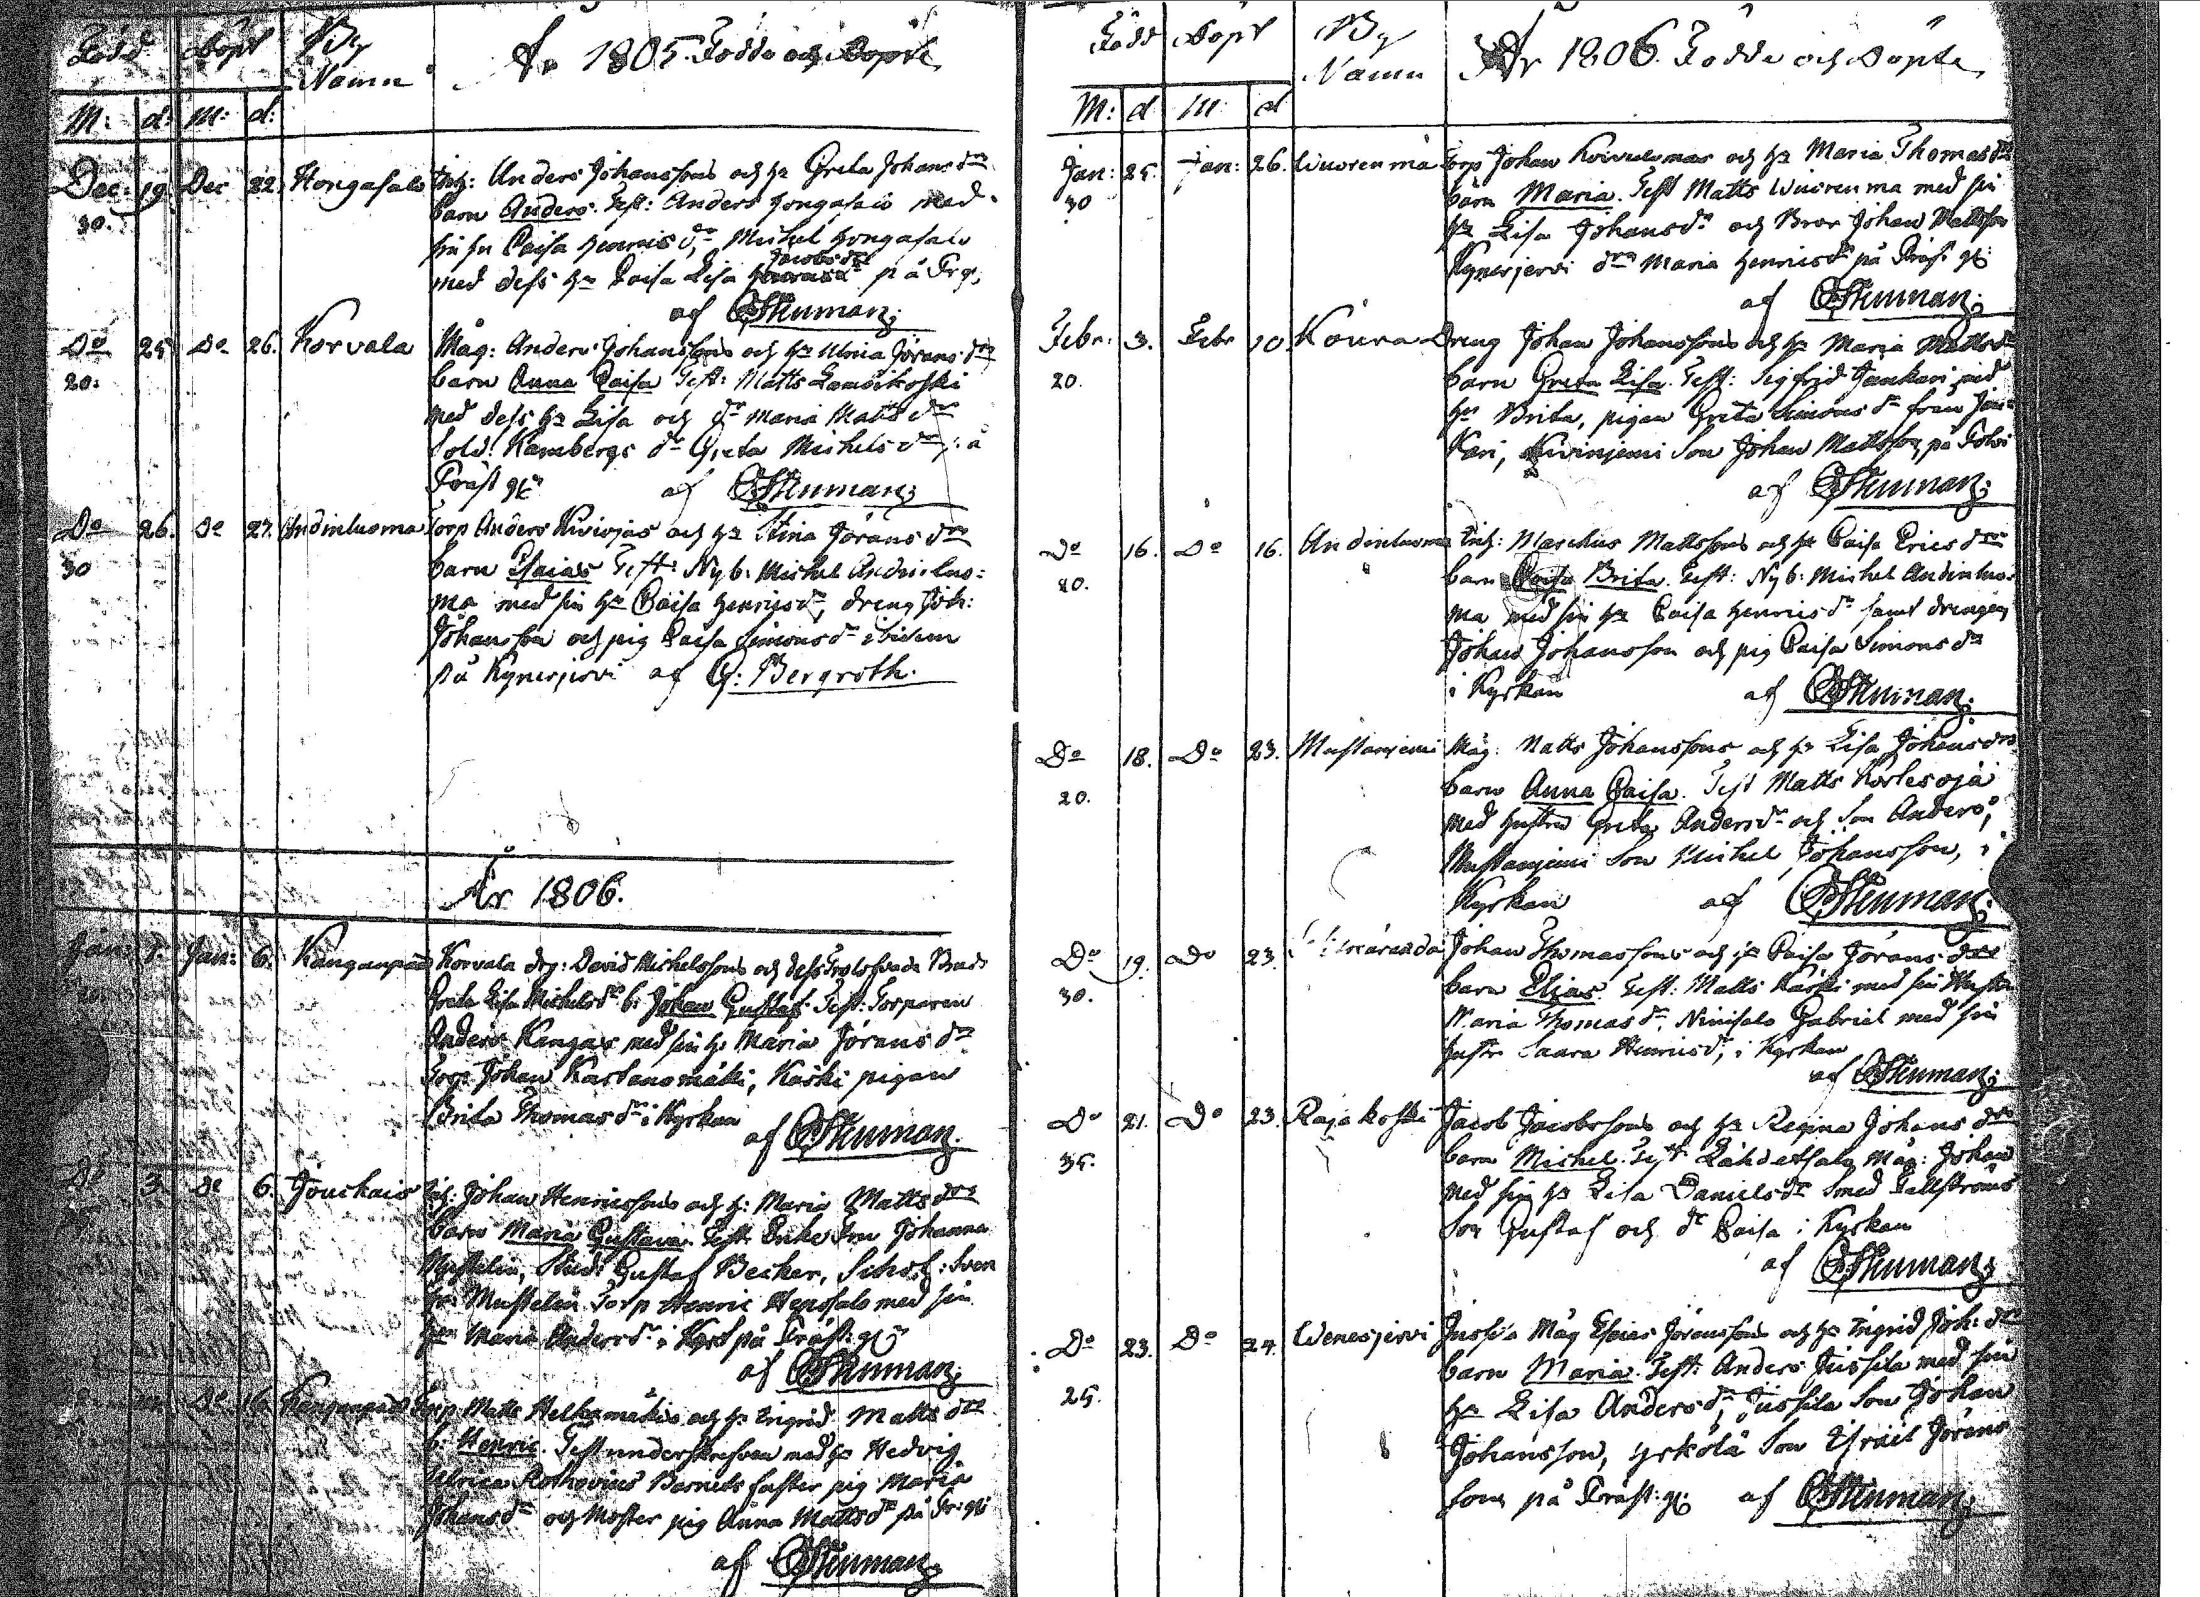 Född Döpt By Namn År 1805. Födde och Döpte
M: d: M: d:
Dec: 19. Dec 22. Hongasalo Inh: Anders Johanssons och h:u Greta Johansd:rs
30. barn Anders. Test: Anders Hongasalo med
sin hu Caisa Henricsd:r, Michel Hongasalo
Jacobsd:r
med dess h:u Caisa Lisa på Prg.
af Stenman.
D:o 25 D:o 26. Korvala Måg: Anders Johanssons och h:u Ulrica Jöransd:rs
20. barn Anna Caisa Test: Matts
med dess h:u Lisa och d:r Maria Mattsd:r
Sold: Kambergs d:r Greta Michelsd:r, å
Präst g: af Stenman.
D:o 26. D:o 27. Andinluoma Torp Anders och h:u Stina Jöransd:rs
30 barn Esaias Test: Nyb: Michel Andinluo:
ma med sin h:u Caisa Henricsd:r, dreng Joh:
Johansson och pig Caisa Simonsd:r ibidem
på Kynerjervi af G: Bergroth.
År 1806.
Jan: Jan: 6. Kanganpää Korvala drg: David Michelssons och dess
Greta Lisa Michelsd:r b: Johan Gustaf. Test: Torparen
Anders Kangas med sin h: Maria Jöransd:r
Torp: Johan Kastanomäki, Kaski pigan
Brita Thomasd:r i Kyrkan
af Stenman.
D:o 3. D:o 6. Jouckais Inh: Johan Henricssons och h: Maria Mattsd:rs
barn Maria Gustava. Test: Enke Fru Johanna
Mustelin, Stud: Gustaf Becker, Schol: Sven
Mustelin Torp Henric med sin
h:u Maria Andersd:r i på Präst: g:
af Stenman.
D:o 16. Kanganpää Torp Matts och h:u Ingrid Mattsd:rs
b: Henric. Test underskrefven med h:u Hedvig
Ulrica Rothovius Barnets faster pig Maria
Johansd:r och Moster pig Anna Mattsd:r på Pr: g:
af Stenman.
Född Döpt By Namn År 1806. Födde och Döpte
M: d M: d
Jan: 25. Jan: 26. Wuorenma Torp Johan och h:u Maria Thomasd:rs
30 barn Maria. Test Matts Wuorenma med sin
h:u Lisa Johansd:r och Bror Johan Mattsson
Kynerjervi d:rn Maria Henricsd:r på Präst g:
af Stenman.
Febr: 3. Febr 10. Koura Dreng Johan Johanssons och h:u Maria Mattsd:rs
20. barn Greta Lisa. Test: Sigfrid med
h:u Brita, pigan Greta Simonsd:r från
Kari, Kivinjemi Son Johan Mattsson, på
af Stenman.
D:o 16. D:o 16. Andinluoma Inh: Marckus Mattssons och h:u Caisa Ericsd:rs
20. barn Caisa Brita. Test: Nyb: Michel Andinluo:
ma med sin h:u Caisa Henricsd:r samt drengen
Johan Johansson och pig Caisa Simonsd:r
i Kyrkan af Stenman.
D:o 18. D:o 23. Mustanjemi Måg: Matts Johanssons och h:u Lisa Johansd:rs
20. barn Anna Caisa. Test Matts
med hustru Greta Andersd:r och Son Anders,
Mustanjemi Son Michel Johansson, i
Kyrkan af Stenman.
D:o 19. D:o 23. Johan Thomassons och h:u Caisa Jöransd:rs
30. barn Elias. Test: Matts med sin Hustru
Maria Thomasd:r, Ninisalo Gabriel med sin
hustr Saara Henricsd:r, i Kyrkan
af Stenman.
D:o 21. D:o 23. Rajakoski Jacob Jacobssons och h:u Regina Johansd:rs
35. barn Michel. Test Lähdetsalo Måg: Johan
med sin h:u Lisa Danielsd:r Smed Fällströms
Son Gustaf och d:r Caisa i Kyrkan
af Stenman.
D:o 23. D:o 24. Wenesjervi Jussila Måg Esaias Jöranssons och h:u Ingrid Joh:d:rs
25. barn Maria. Test: Anders Jussila med sin
h:u Lisa Andersd:r, Jussila Son Johan
Johansson, Yrkölä Son Israel Jörans
son, på Präst: g: af Stenman.